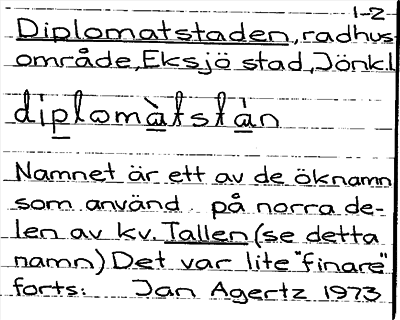 1-2
Diplomatstaden, radhus-
område, Eksjö stad, Jönk.l
diplomàtstàn
Namnet är ett av de öknamn
som använd på norra de-
len av kv. Tallen (se detta
namn) Det var lite "finare"
forts: Jan Agertz 1973